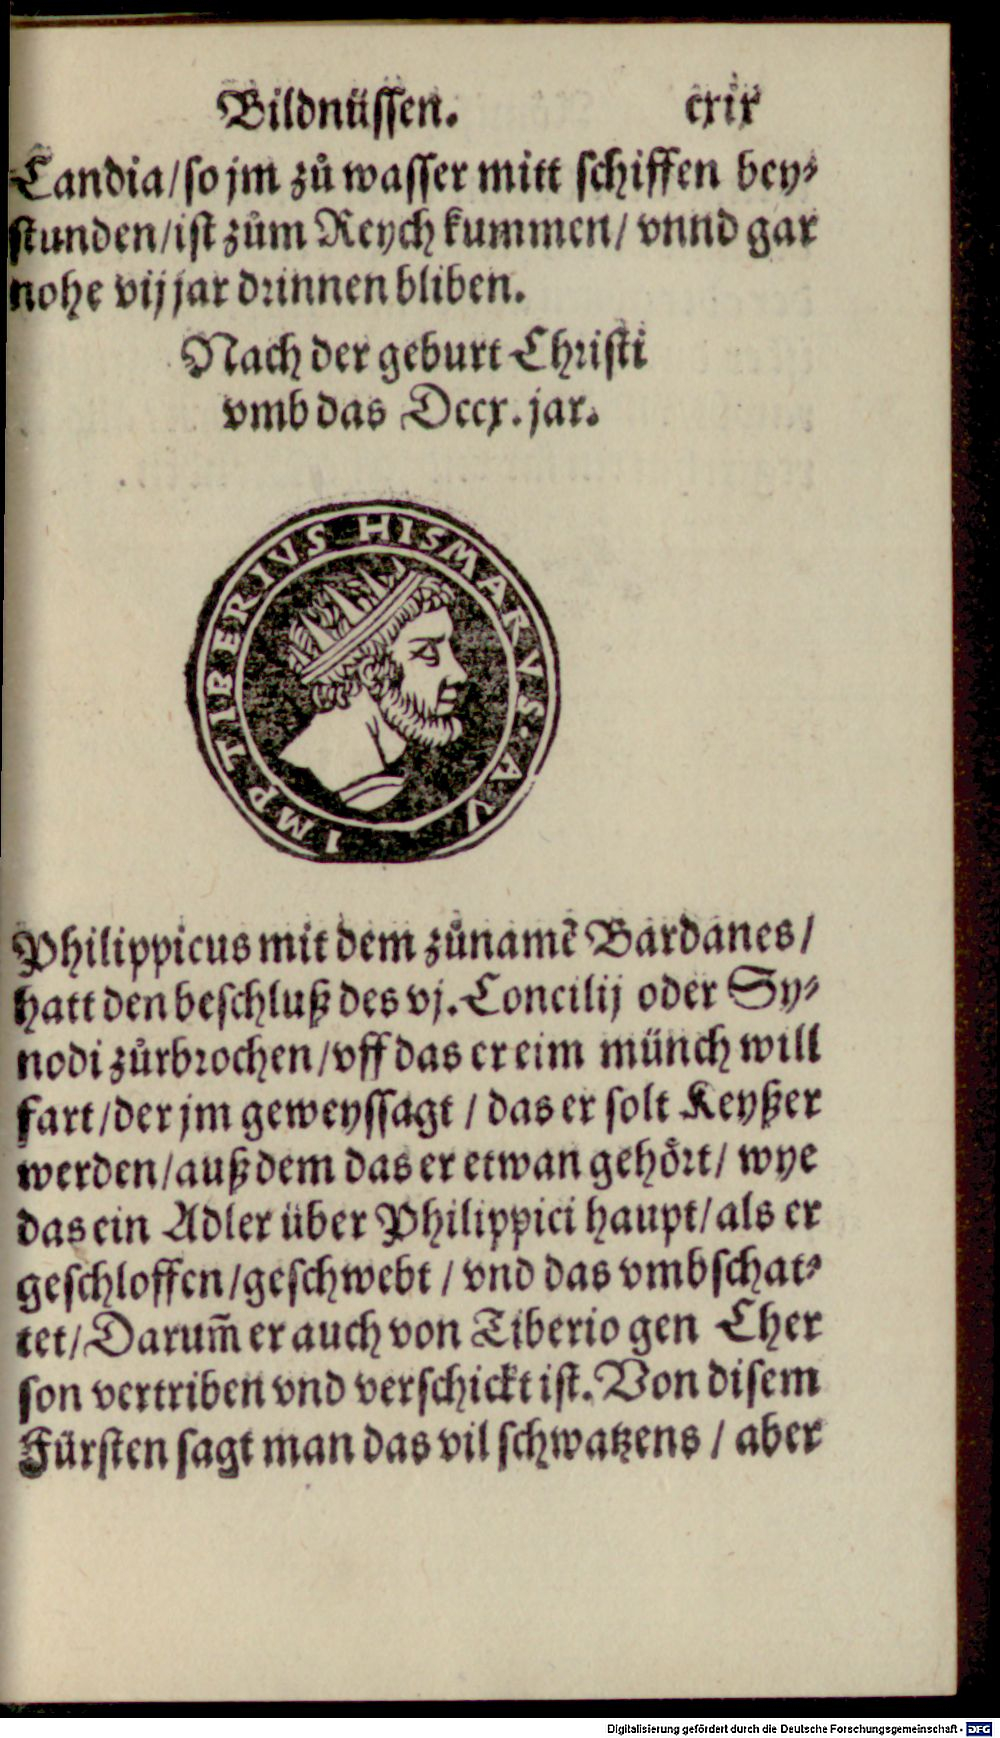 Bildnüssen. cxix
Candia/so jm zů wasser mitt schiffen bey⸗
stunden/ist zům Reych kummen/ vnnd gar
nohe vij jar drinnen bliben.
Nach der geburt Christi
vmb das Dccx. jar.
IMP TIBERIVS HISMARVS. AV
Philippicus mit dem zůnamẽ Bardanes/
hatt den beschluß des vj. Concilij oder Sy⸗
nodi zůrbrochen/vff das er eim münch will
fart/der jm geweyssagt / das er solt Keyßer
werden/auß dem das er etwan gehört/ wye
das ein Adler über Philippici haupt/als er
geschloffen/geschwebt / vnd das vmbschat⸗
tet/Darum̃ er auch von Tiberio gen Cher
son vertriben vnd verschickt ist. Von disem
Fürsten sagt man das vil schwatzens / aber
Digitalisierung gefördert durch die Deutsche Forschungsgemeinschaft - DFG